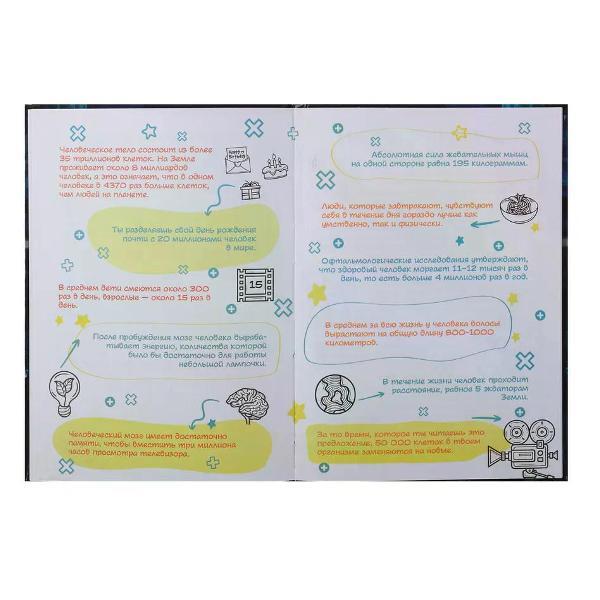 Человеческое тело состоит из более
35 триллионов клеток. На Земле
проживает около 8 миллиардов
человек, а это означает, что в одном
человеке в 4370 раз больше клеток,
чем людей на планете.
Happy
Birthday
Ты разделяешь свой день рождения
почти с 20 миллионами человек
в мире.
В среднем дети смеются около 300
раз в день, взрослые — около 15 раз в
день.
15
После пробуждения мозг человека выраба-
тывает энергию, количества которой
было бы достаточно для работы
небольшой лампочки.
Человеческий мозг имеет достаточно
памяти, чтобы вместить три миллиона
часов просмотра телевизора.
Абсолютная сила жевательных мышц
на одной стороне равна 195 килограммам.
Люди, которые завтракают, чувствуют
себя в течение дня гораздо лучше как
умственно, так и физически.
Офтальмологические исследования утверждают,
что здоровый человек моргает 11–12 тысяч раз в
день, то есть больше 4 миллионов раз в год.
В среднем за всю жизнь у человека волосы
вырастают на общую длину 800–1000
километров.
В течение жизни человек проходит
расстояние, равное 5 экваторам
Земли.
За то время, которое ты читаешь это
предложение, 50 000 клеток в твоем
организме заменяются на новые.